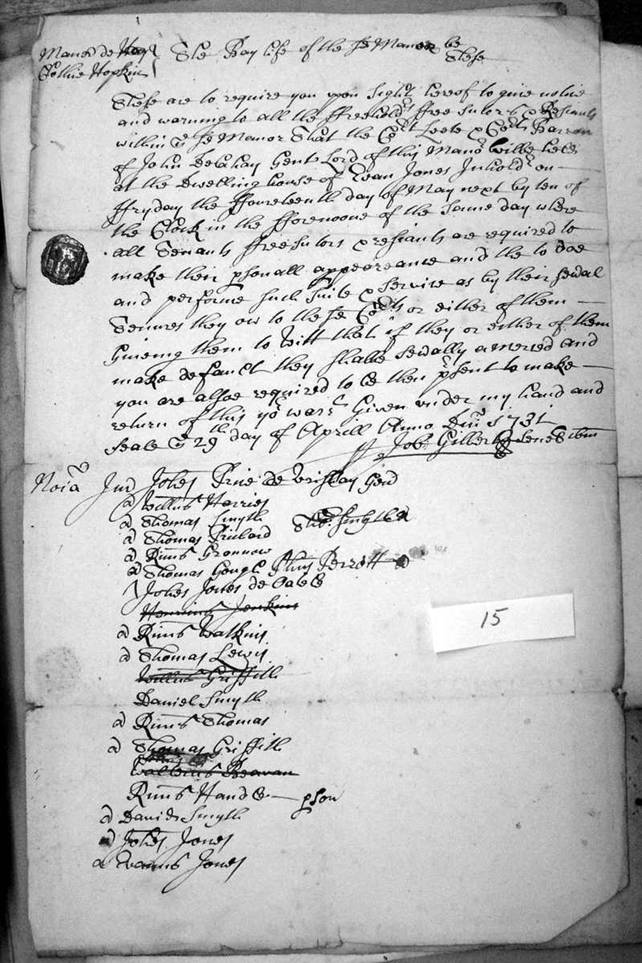 Manor de Hay
To the Bayliffe of the sd Mannor be
These
These are to require you upon sight hereof to give notice
and warning to all the ffreehold ffree Suters & Resiants
within the sd Mannor That the Court Leete & Court Barron
of John Gent Lord of this Manor wilbe held
at the Dwelling house of Evan Jones on
ffryday the ffourteenth day of May next by ten of
the Clock in the fforenoone of the same day where
all Tenants ffree Sutors & resiants are required to
make their psonall appearance and then to doe
and performe such suite & service as by their sevall
Tenures they ow to the sd Courts or either of them
Giveing them to witt that if they or either of them
make default they shalbe sevally amerced and
you are alsoe required to be then psent to make
return of this yor warrt Given under my hand and
seale the 29th day of Aprill Anno Dni
Job: Gillert
Noia Jur Johes de Gent
a Willus Harries
a Thomas Smyth
a Thomas Prichard
a Ricus Gronnow
a Thomas Gough Perrott
Johes Jones de
Henricus Jenkins
a Ricus Watkins
a Thomas Lewis
Willus Griffith
Daniel Smyth
a Ricus Thomas
a Thomas Griffith
Beavan
Ricus Hand
a David Smyth
a Johes Jones
a Evanus Jones
15